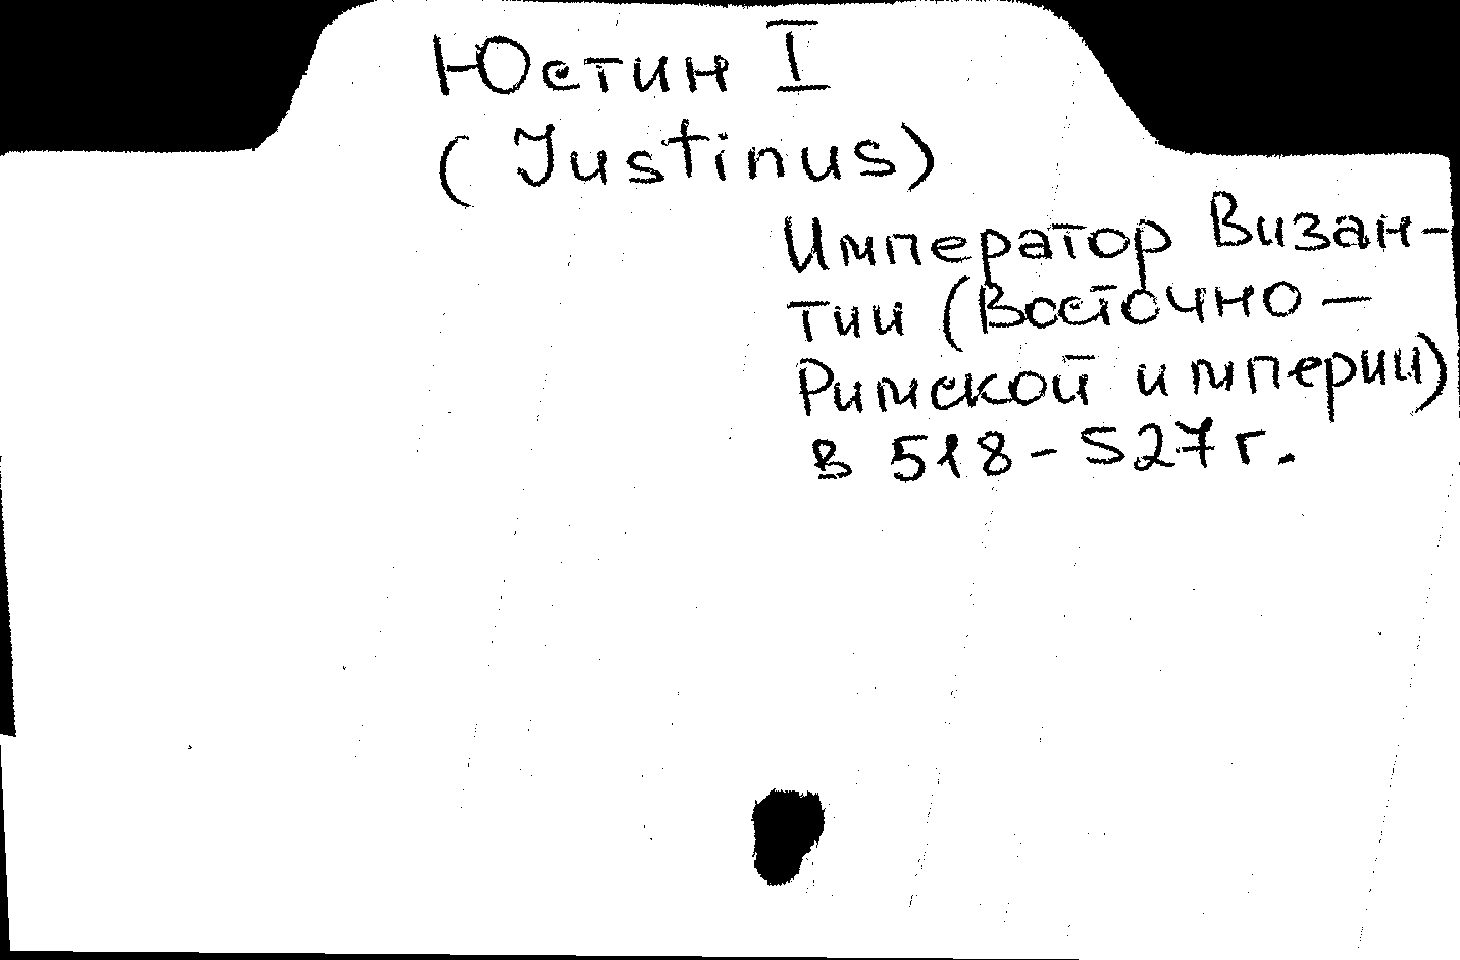 Юстин I
(Justinus)
Император Визан-
тии (Восточно –
Римской империи)
в 518 - 527 г.